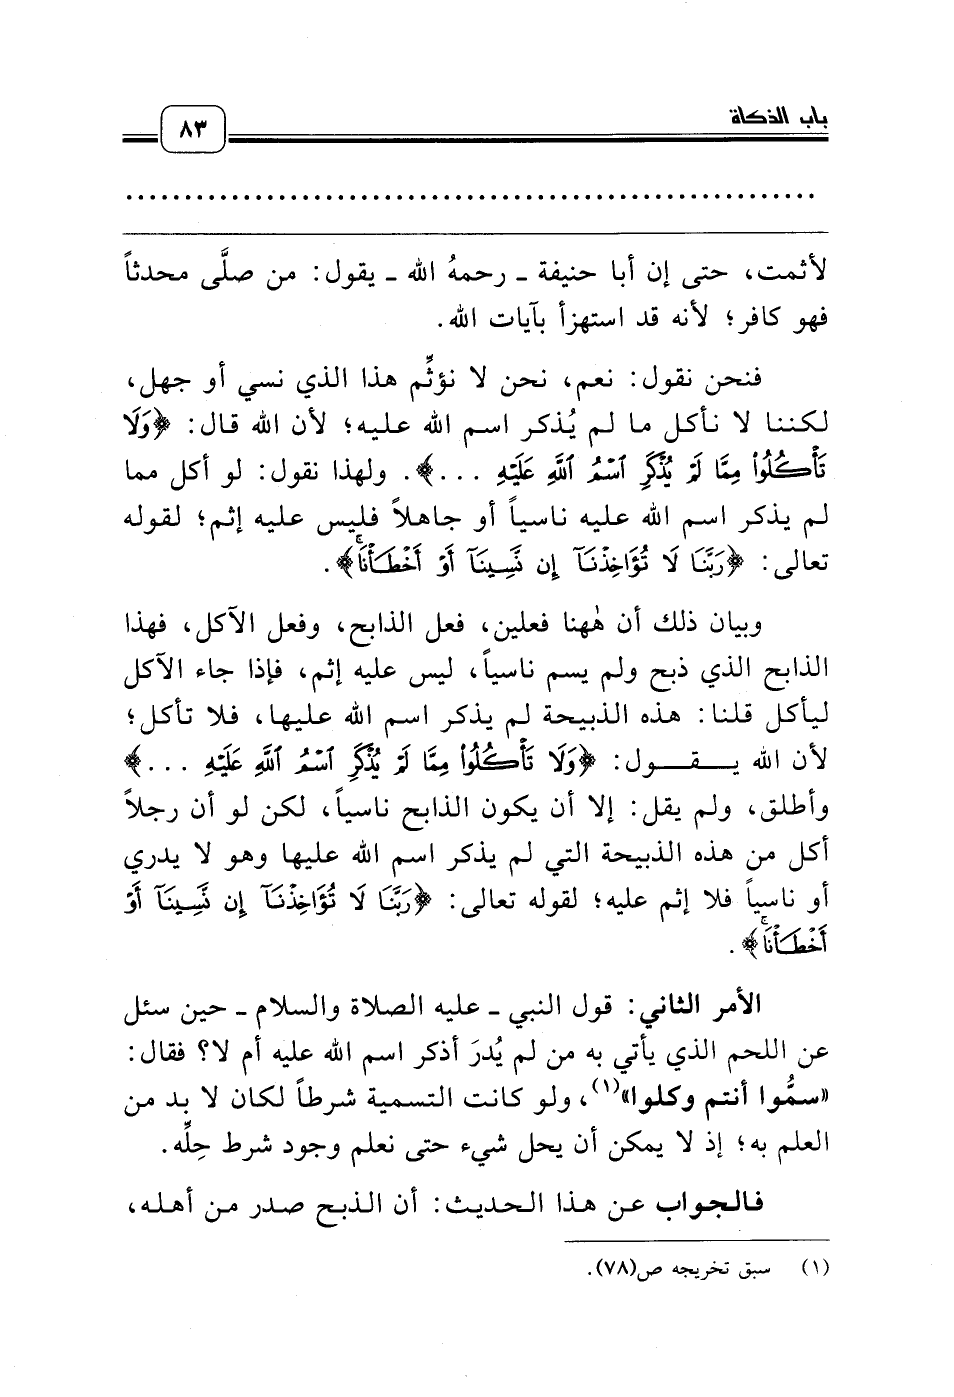 باب الذكاة
٨٣
لأثمت، حتى إن أبا حنيفة ـ رحمهُ الله ـ يقول: من صلَّى محدثاً
فهو كافر؛ لأنه قد استهزأ بآيات الله.
فنحن نقول: نعم، نحن لا نؤثِّم هذا الذي نسي أو جهل،
لكننا لا نأكل ما لم يُذكر اسم الله عليه؛ لأن الله قال: ﴿وَلَا
تَأْكُلُوا۟ مِمَّا لَمْ يُذْكَرِ ٱسْمُ ٱللَّهِ عَلَيْهِ ...﴾. ولهذا نقول: لو أكل مما
لم يذكر اسم الله عليه ناسياً أو جاهلاً فليس عليه إثم؛ لقوله
تعالى: ﴿رَبَّنَا لَا تُؤَاخِذْنَآ إِن نَّسِينَآ أَوْ أَخْطَأْنَاۚ﴾.
وبيان ذلك أن هٰهنا فعلين، فعل الذابح، وفعل الآكل، فهذا
الذابح الذي ذبح ولم يسم ناسياً، ليس عليه إثم، فإذا جاء الآكل
ليأكل قلنا: هذه الذبيحة لم يذكر اسم الله عليها، فلا تأكل؛
لأن الله يـــقـــول: ﴿وَلَا تَأْكُلُوا۟ مِمَّا لَمْ يُذْكَرِ ٱسْمُ ٱللَّهِ عَلَيْهِ ...﴾
وأطلق، ولم يقل: إلا أن يكون الذابح ناسياً، لكن لو أن رجلاً
أكل من هذه الذبيحة التي لم يذكر اسم الله عليها وهو لا يدري
أو ناسياً فلا إثم عليه؛ لقوله تعالى: ﴿رَبَّنَا لَا تُؤَاخِذْنَآ إِن نَّسِينَآ أَوْ
أَخْطَأْنَاۚ﴾.
الأمر الثاني: قول النبي ـ عليه الصلاة والسلام ـ حين سئل
عن اللحم الذي يأتي به من لم يُدرَ أذكر اسم الله عليه أم لا؟ فقال:
«سمُّوا أنتم وكلوا»(١)، ولو كانت التسمية شرطاً لكان لا بد من
العلم به؛ إذ لا يمكن أن يحل شيء حتى نعلم وجود شرط حِلِّه.
فالجواب عن هذا الحديث: أن الذبح صدر من أهله،
(١) سبق تخريجه ص(٧٨).